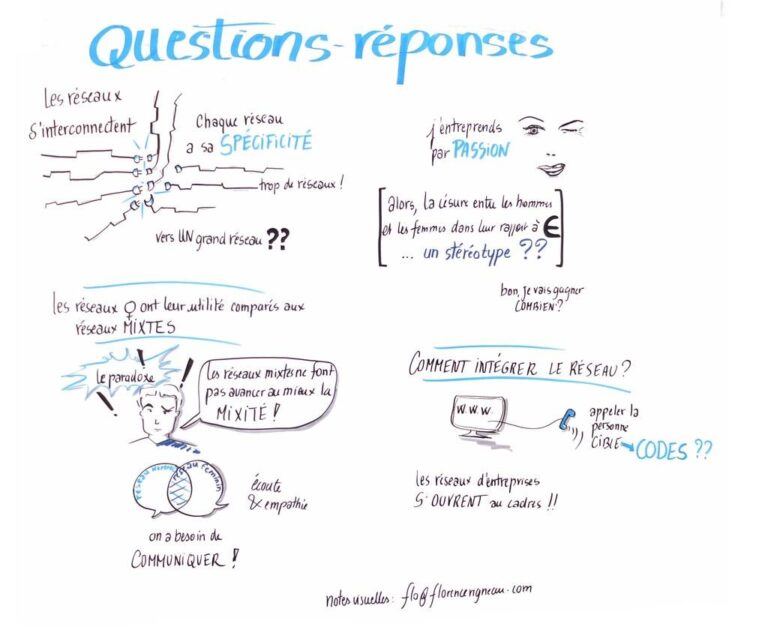 Questions-réponses
Les réseaux
S'interconnectent
Chaque réseau
a sa SPÉCIFICITÉ
trop de réseaux !
vers UN grand réseau ??
j'entreprends
par PASSION
alors, la césure entre les hommes
et les femmes dans leur rapport à €
... un stéréotype ??
bon, je vais gagner
COMBIEN ?
les réseaux ♀ ont leur utilité comparés aux
réseaux MIXTES
le paradoxe
Les réseaux mixtes ne font
pas avancer au mieux la
MIXITÉ !
réseau féminin
écoute
& empathie
on a besoin de
COMMUNIQUER !
COMMENT INTÉGRER LE RÉSEAU ?
W.W.W.
appeler la
personne
CIBLE → CODES ??
les réseaux d'entreprises
S'OUVRENT au cadres !!
notes usuelles :